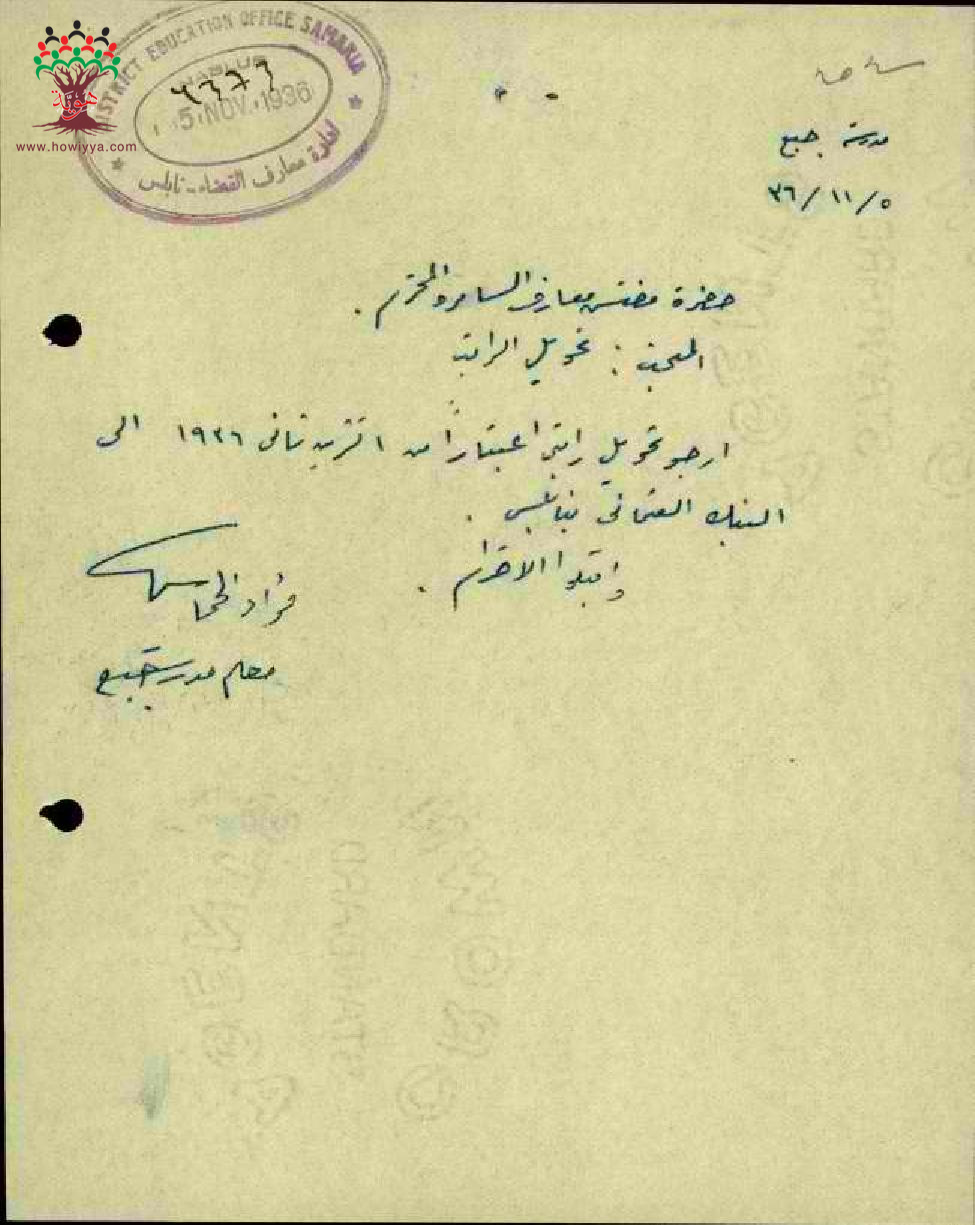 DISTRICT EDUCATION OFFICE SAMARIA
NABLUS
5 NOV 1936
ادارة معارف القضاء - نابلس
هوية
www.howiyya.com
مدرسة جبع
٥ / ١١ / ٣٦
حضرة مفتش معارف السامرة المحترم .
المبحث : تحويل الراتب
ارجو تحويل راتبي اعتباراً من ١ تشرين ثاني ١٩٣٦ الى
البنك العثماني بنابلس .
واقبلوا الاحترام .
فؤاد
معلم مدرسة جبع
STANDARD